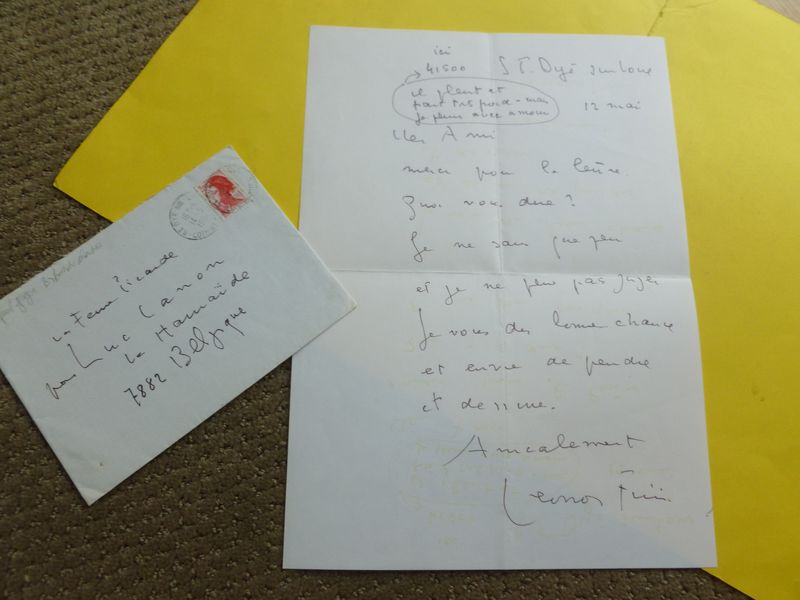 ici
41500 S T. Dyé sur Loire
il pleut et
part très
je peins avec amour
12 mai
Ami
merci pour la lettre.
Quoi vous dire?
Je ne sais que peu
et je ne peux pas juger
Je vous dis bonne chance
et envie de peindre
et dessiner.
Amicalement
Leonor Fini
La Ferme
pour Luc Canon
La Hamaïde
7882 Belgique